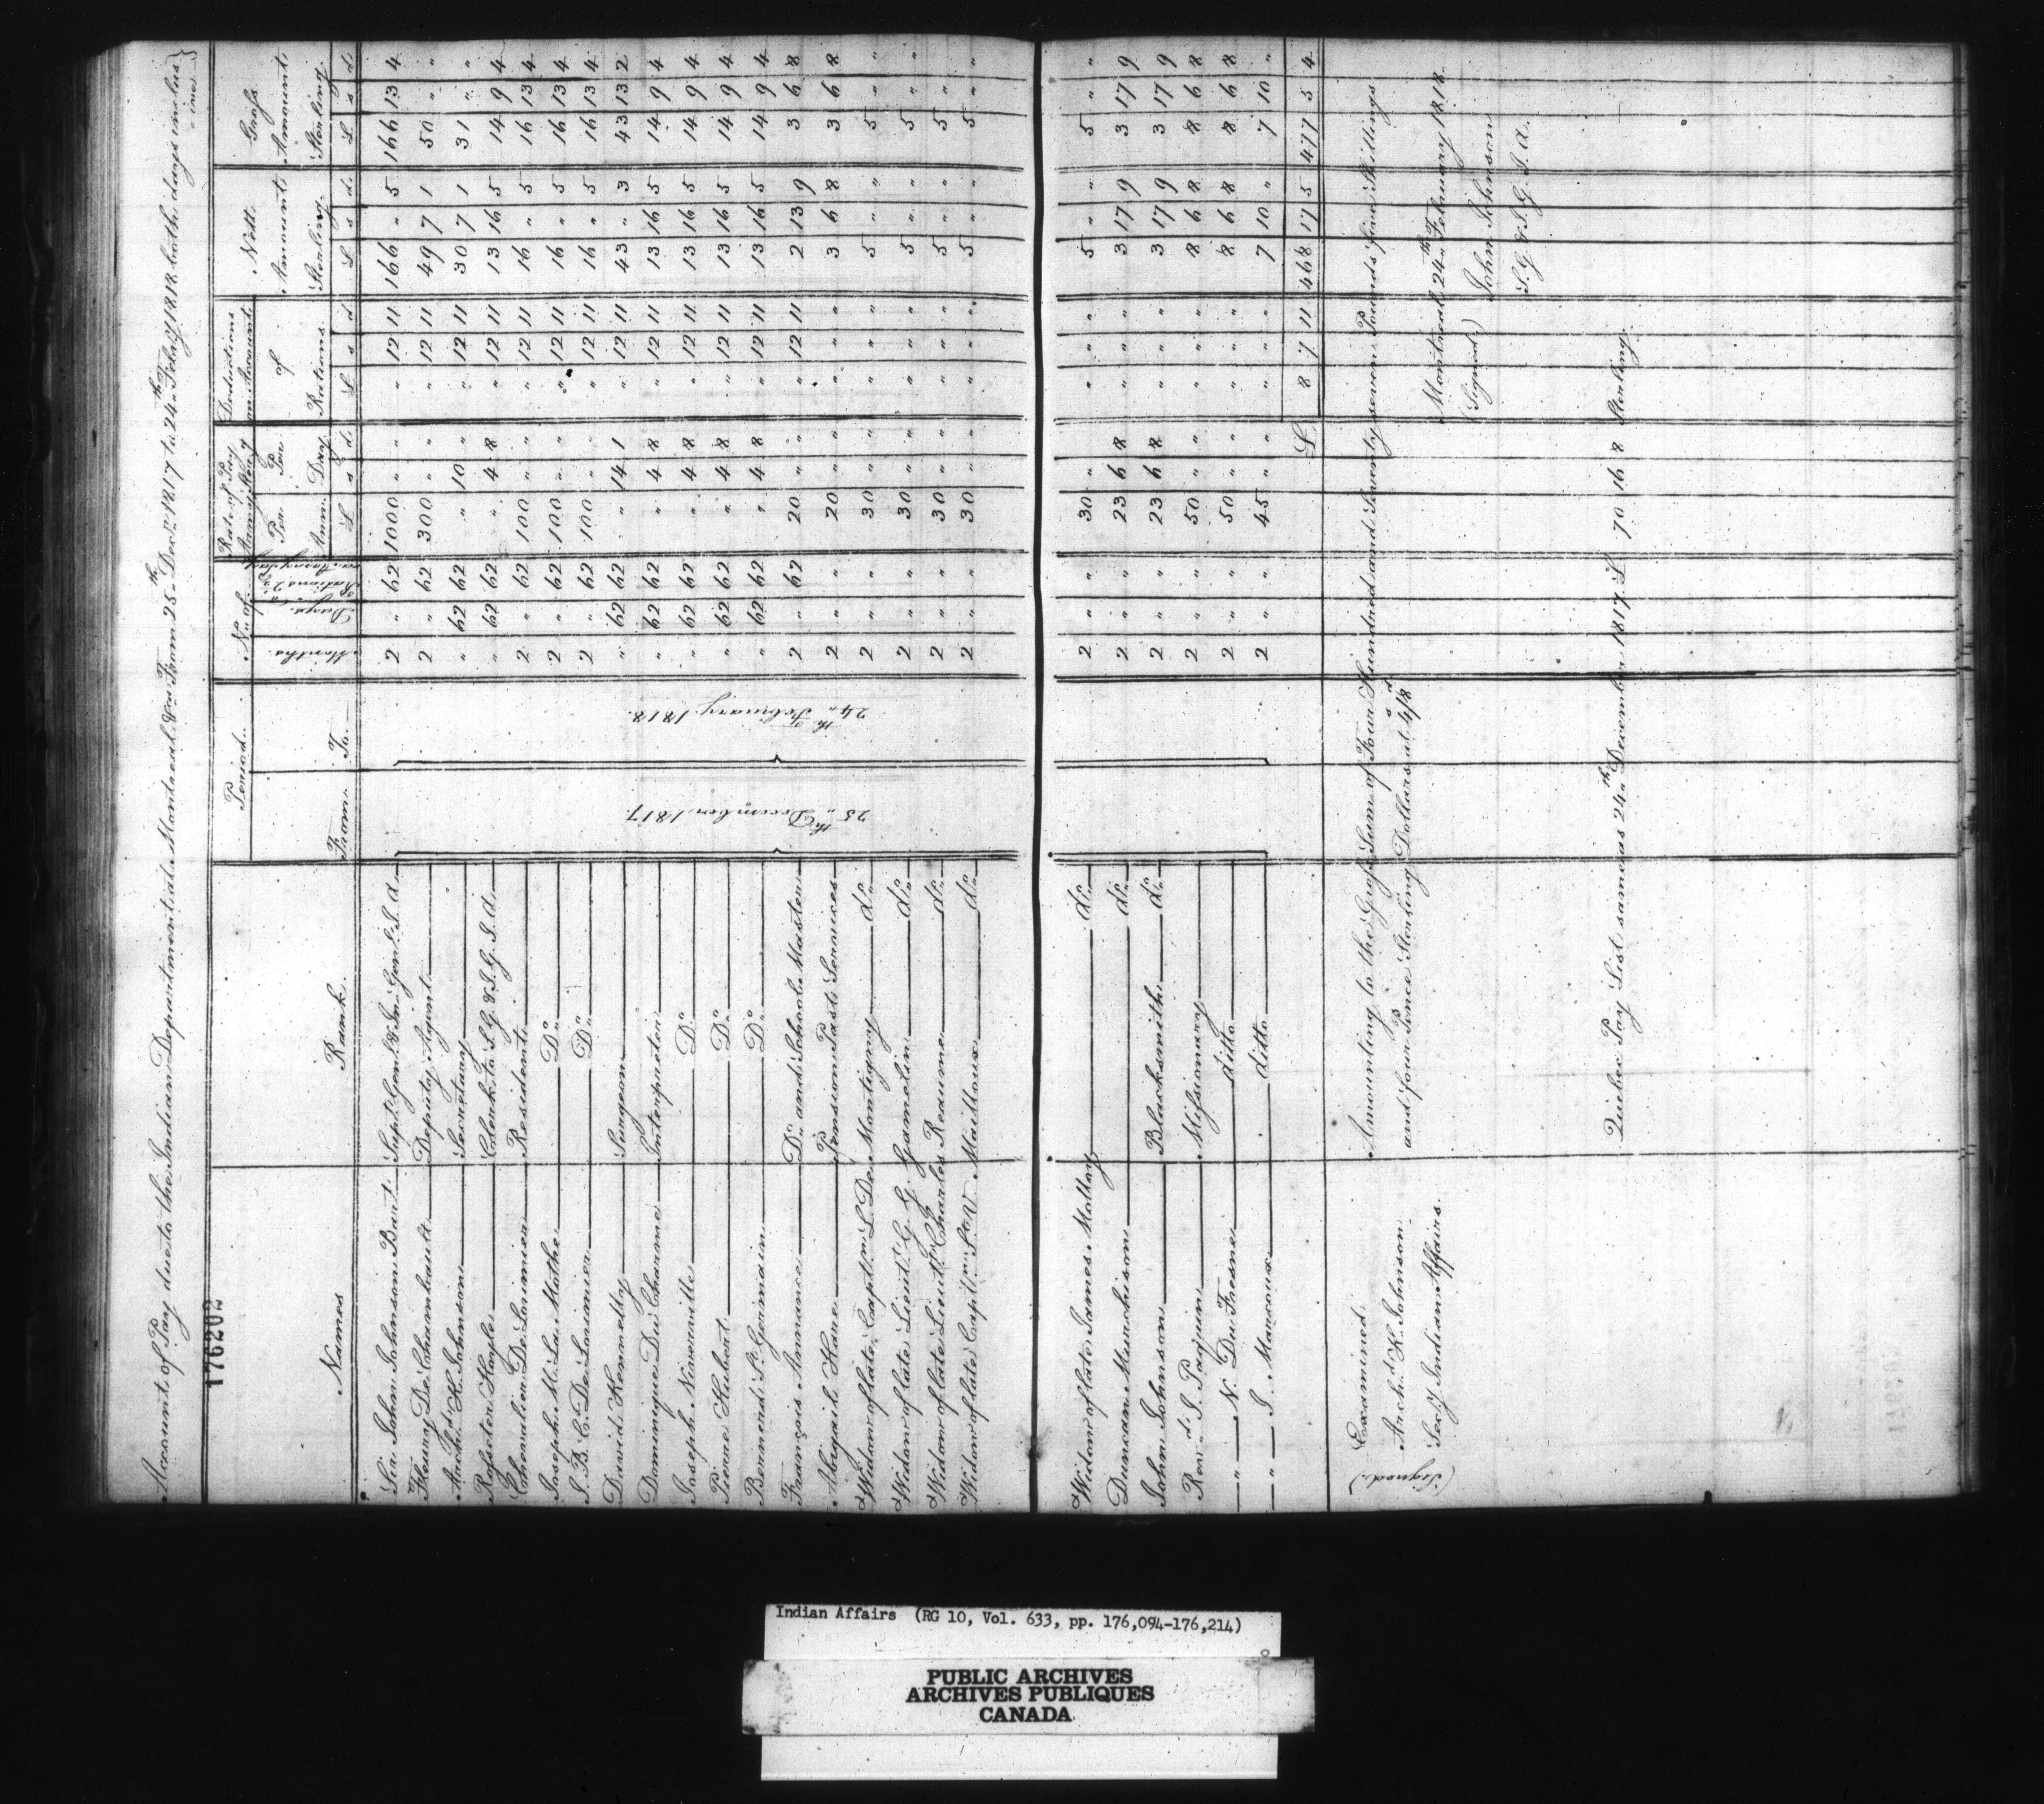 Account of Pay due to the Indian Department at Montreal &ca From 25th Decr 1817 to 24th Febry 1818 both days inclus
ive}
176202
Names Rank Period No of Rate of Pay Army Sterg Deductions on Account of Rations Nett Amount Sterling Gross Amount Sterling
From To Months Days Per Annm Per Day
£ s d £ s d £ s d £ s d
Sir John Johnson Bart Supt Genl & In. Genl I. A. 2 " 62 1000 " " " 12 11 166 " 5 166 13 4
Fleury De Chambault Deputy Agent 2 " 62 300 " " " 12 11 49 7 1 50 " "
Archd K. Johnson Secretary " 62 62 " 10 " " 12 11 30 7 1 31 " "
Rofseter Hoyle Clerk to S. G. & I. G. I. A. " 62 62 " 4 8 " 12 11 13 16 5 14 9 4
Chevalier De Lorimier Resident 2 " 62 100 " " " 12 11 16 " 5 16 13 4
Joseph M. La Mothe Do 2 " 62 100 " " " 12 11 16 " 5 16 13 4
J. B. C. De Lorimier Do 2 " 62 100 " " " 12 11 16 " 5 16 13 4
David Kennelly Surgeon " 62 62 " 14 1 " 12 11 43 " 3 43 13 2
Dominique Du Charme Interpreter " 62 62 " 4 8 " 12 11 13 16 5 14 9 4
Joseph Niverville Do " 62 62 " 4 8 " 12 11 13 16 5 14 9 4
Pierre Hubert Do " 62 62 " 4 8 " 12 11 13 16 5 14 9 4
Bernard St Germain Do " 62 62 " 4 8 " 12 11 13 16 5 14 9 4
François Annance Do and School Master 2 " 62 20 " " " 12 11 2 13 9 3 6 8
Abigail Hare Pension Past Services 2 " " 20 " " " " " 3 6 8 3 6 8
Widow of late Captn L. De Montigny do 2 " " 30 " " " " " 5 " " 5 " "
Widow of late Lieut G. G. Gamelin do 2 " " 30 " " " " " 5 " " 5 " "
Widow of late Lieut Charles Reaume do 2 " " 30 " " " " " 5 " " 5 " "
Widow of late Captn St V. Mailloux do 2 " " 30 " " " " " 5 " " 5 " "
25th December 1817.
24th February 1818.
Widow of late James Mallay do 2 " " 30 " " " " " 5 " " 5 " "
Duncan Murchison do 2 " " 23 6 8 " " " 3 17 9 3 17 9
John Johnson Blacksmith do 2 " " 23 6 8 " " " 3 17 9 3 17 9
Revd J. Paquin Mifsionary 2 " " 50 " " " " " 8 6 8 8 6 8
" N. Du Fresne ditto 2 " " 50 " " " " " 8 6 8 8 6 8
" J. Marcoux ditto 2 " " 45 " " " " " 7 10 " 7 10 "
£ 8 7 11 468 17 5 477 5 4
Amounting to the Grofs Sum of Four Hundred and Seventy seven Pounds five Shillings
and four Pence Sterling Dollars at 4/8
Examined.
(Signed) Archd K. Johnson
Secy Indian Affairs.
Montreal 24th February 1818.
(Signed) John Johnson
S. G. & I. G. I. A.
Quebec Pay List same as 24th December 1817. £ 70 16 8 Sterling.
Indian Affairs (RG 10, Vol. 633, pp. 176,094-176,214)
PUBLIC ARCHIVES
ARCHIVES PUBLIQUES
CANADA